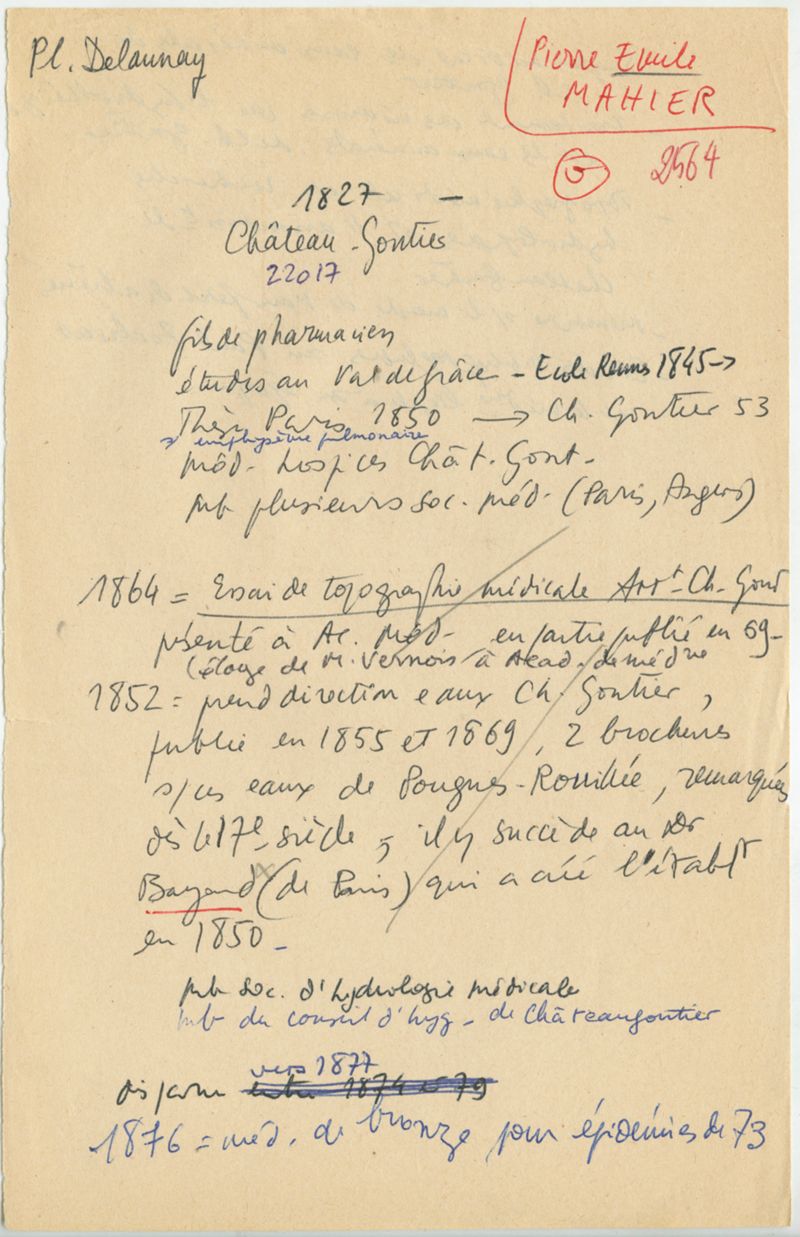 Pl. Delaunay
Pierre Emile
MAHIER
2564
1827 –
Château-Gontier
22017
fils de pharmacien
études au Val de grâce – Ecole Rennes 1845 →
Thèse Paris 1850 → Ch. Gontier 53
s/ emphysème pulmonaire
méd. hospices Chât. Gont.
mb plusieurs soc. méd. (Paris, Angers)
1864 = Essai de topographie médicale Arrt Ch. Gont
présenté à Ac. Méd. en partie publié en 69 –
(éloge de M. Vernois à Acad. de médne
1852 = prend direction eaux Ch. Gontier,
publie en 1855 et 1869, 2 brochures
s/ces eaux de Pougues-Rouillée, remarquées
dès le 17e siècle, il y succède au Dr
Bayard (de Paris) qui a créé l'établt
en 1850 –
mb soc. d'hydrologie médicale
mb du conseil d'hyg – de Châteaugontier
vers 1877
disparu entre 1874 et 79
1876 = méd. de bronze pour épidémies de 73